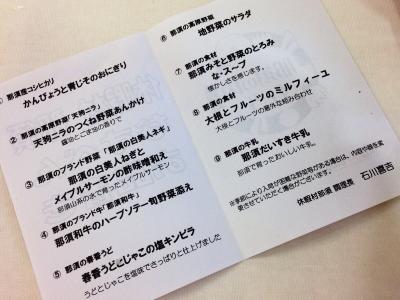 ① 那須産コシヒカリ
かんぴょうと青じそのおにぎり
② 那須の高原野菜「天狗ニラ」
天狗ニラのつくね野菜あんかけ
醤油とごま油の香りで
③ 那須のブランド野菜「那須の白美人ネギ」
那須の白美人ねぎと
メイプルサーモンの酢味噌和え
那須山系の水で育ったメイプルサーモン
④ 那須のブランド牛「那須和牛」
那須和牛のハーブソテー旬野菜添え
⑤ 那須の春香うど
春香うどとじゃこの塩キンピラ
うどとじゃこを塩味でさっぱりと仕上げました
⑥ 那須の高原野菜
地野菜のサラダ
⑦ 那須の食材
那須みそと野菜のとろみ
な・スープ
懐かしさを感じます。
⑧ 那須の食材
大根とフルーツのミルフィーユ
大根とフルーツの意外な組み合わせ
⑨ 那須の牛乳
那須だいすき牛乳
那須で育ったおいしい牛乳。
※季節により入荷が困難な野菜等がある場合は、内容や器を変
更させていただく場合がございます。
休暇村那須 調理長 石川喜吉